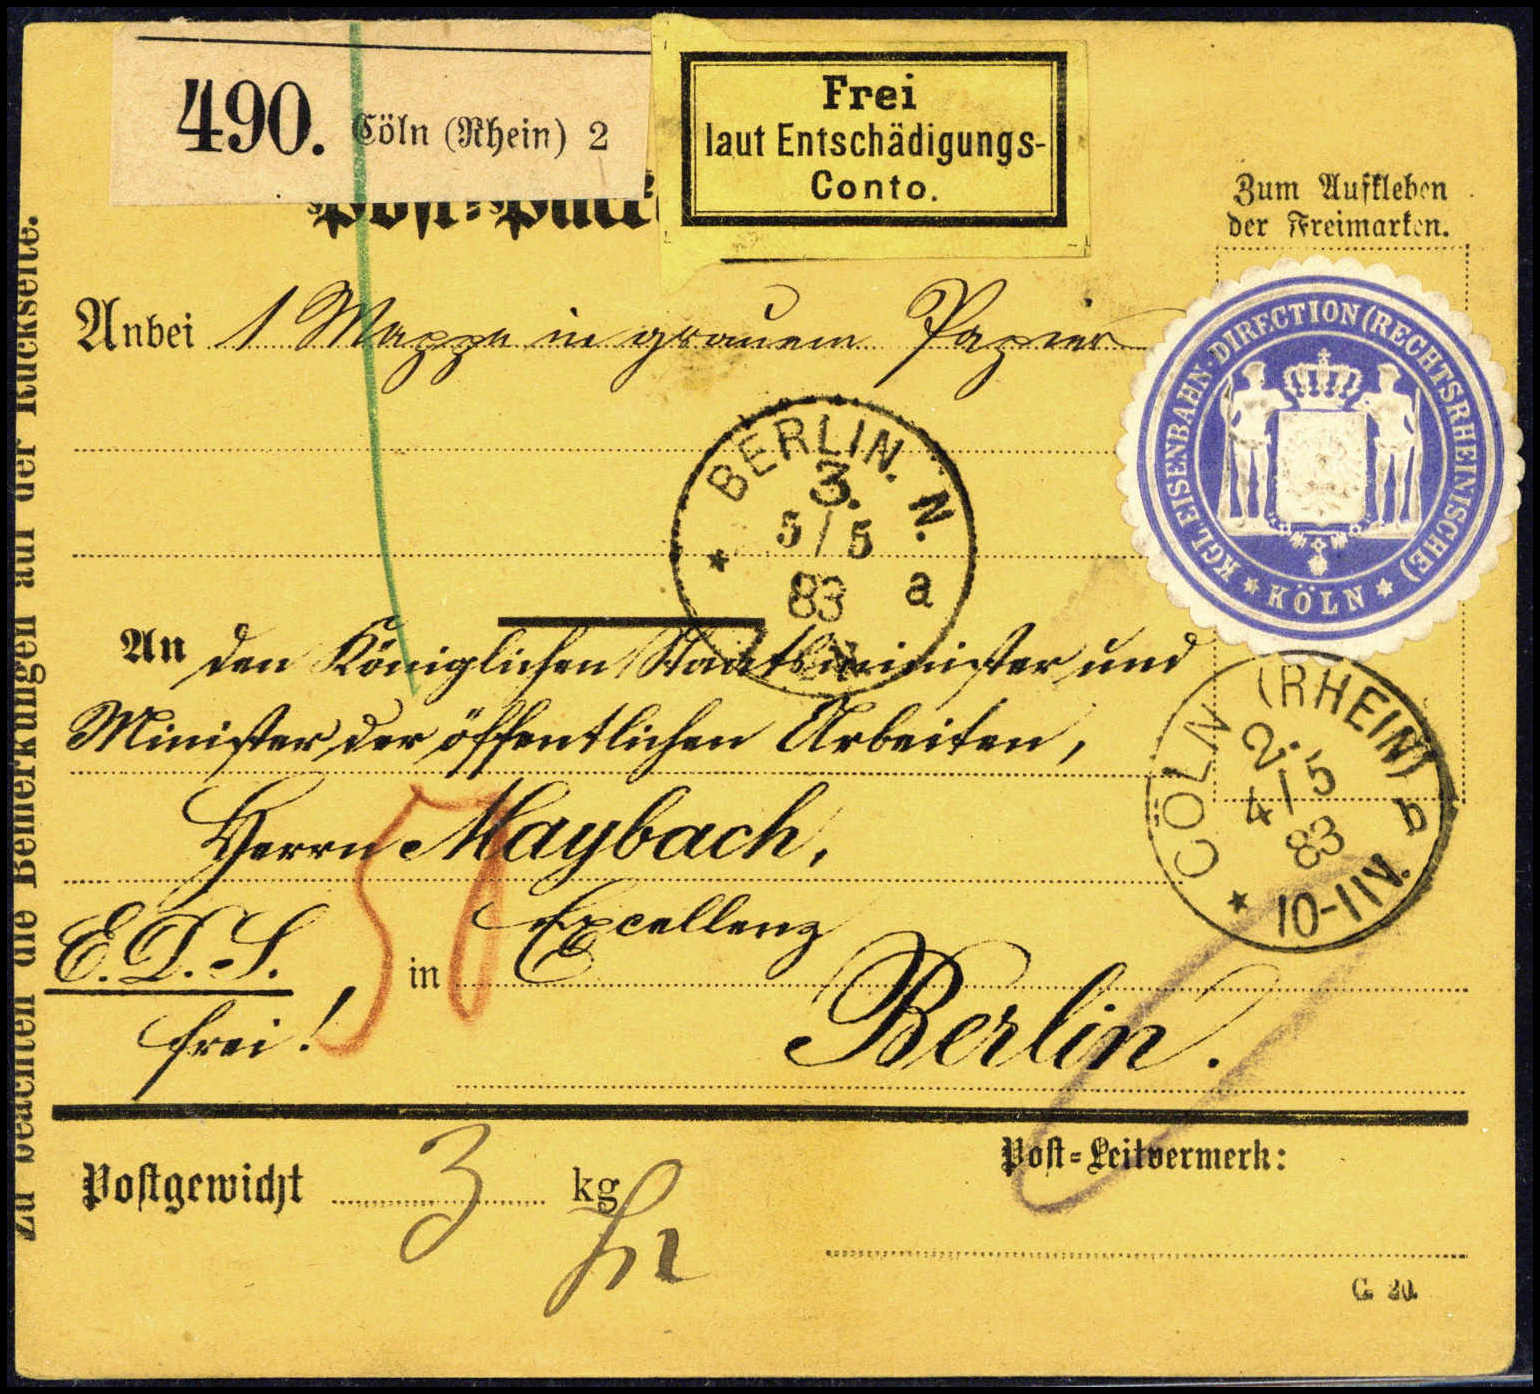 490. Cöln (Rhein) 2
Frei
laut Entschädigungs-
Conto.
Zum Aufkleben
der Freimarken.
Anbei 1 Mappe in grauem Papier
KGL. EISENBAHN-DIRECTION (RECHTSRHEINISCHE)
* KÖLN *
BERLIN. N.
3.
5/5
83 a
*
An den Königlichen Staatsminister und
Minister der öffentlichen Arbeiten,
Herrn Maybach,
Excellenz
E. D. S.
frei!
50
in Berlin.
* CÖLN (RHEIN) b
2.
4/5
83
10-11V.
Postgewicht 3 kg
Post=Leitvermerk:
C. 20.
Zu beachten die Bemerkungen auf der Rückseite.